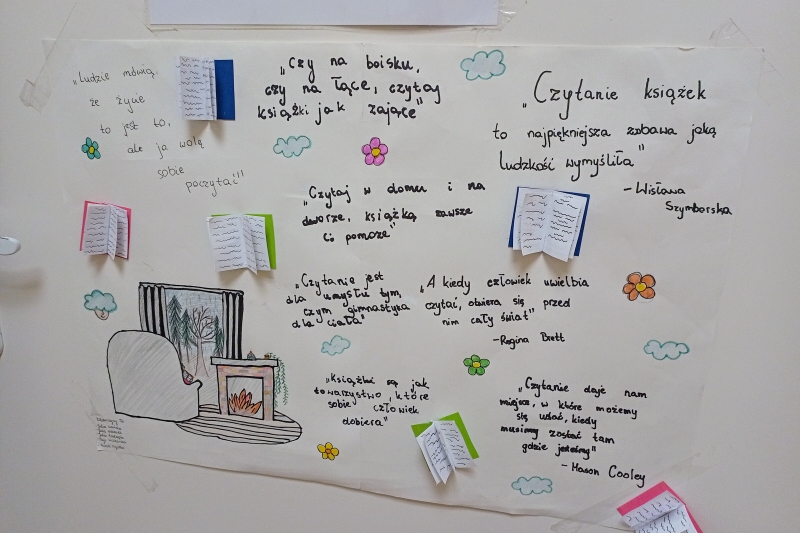 „Ludzie mówią,
że życie
to jest to,
ale ja wolę
sobie
poczytać!"
„Czy na boisku,
czy na łące, czytaj
książki jak zające"
„Czytanie książek
to najpiękniejsza zabawa jaką
ludzkość wymyśliła"
- Wisława
Szymborska
„Czytaj w domu i na
dworze, książka zawsze
Ci pomoże"
„Czytanie jest
dla umysłu tym,
czym gimnastyka
dla ciała"
„A kiedy człowiek uwielbia
czytać, otwiera się przed
nim cały świat"
- Regina Brett
„Książki są jak
towarzystwo, które
sobie człowiek
dobiera"
„Czytanie daje nam
miejsce, w które możemy
się udać, kiedy
musimy zostać tam
gdzie jesteśmy"
- Mason Cooley